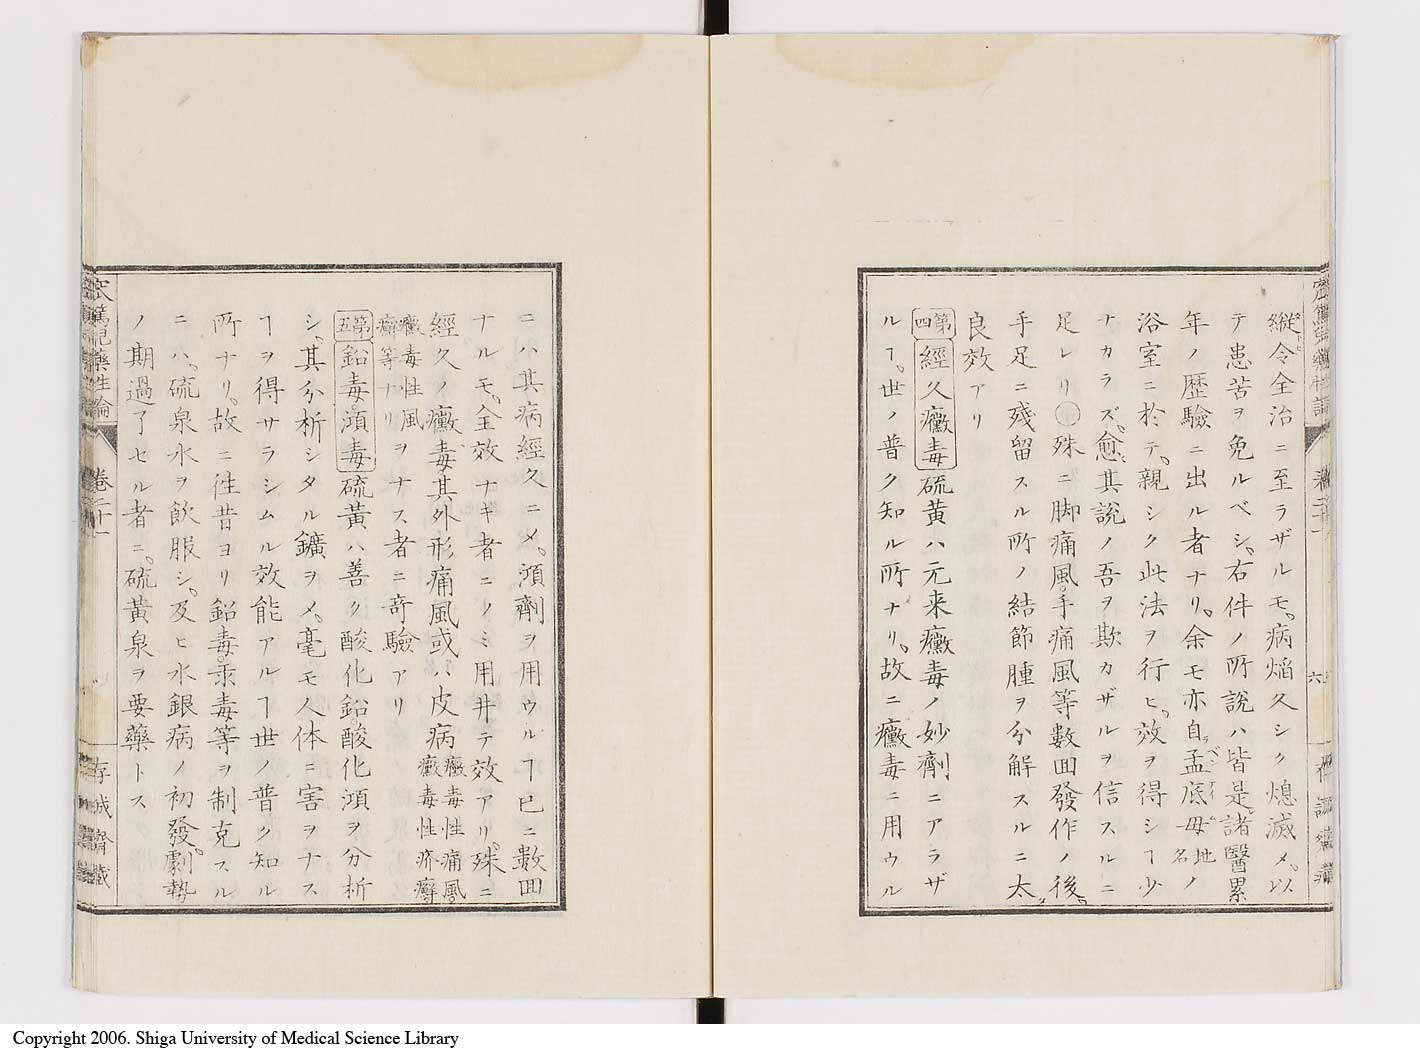 縱令全治ニ至ラザルモ、病焔久シク熄滅メ、以
テ患苦ヲ免ルベシ、右件ノ所說ハ皆是諸醫累
年ノ歷驗ニ出ル者ナリ、余モ亦自ラ孟底毋地名ノ
浴室ニ於テ、親シク此法ヲ行ヒ、效ヲ得シヿ少
ナカラズ、愈其說ノ吾ヲ欺カザルヲ信スルニ
足レリ○殊ニ脚痛風、手痛風等數回發作ノ後、
手足ニ殘留スル所ノ結節腫ヲ分解スルニ太
良效アリ
第四 經久黴毒 硫黄ハ元来黴毒ノ妙劑ニアラザ
ルヿ、世ノ普ク知ル所ナリ、故ニ黴毒ニ用ウル
ニハ其病經久ニメ、澒劑ヲ用ウルヿ已ニ數回
ナルモ、全效ナキ者ニノミ用井テ效アリ、殊ニ
經久ノ黴毒、其外形痛風或ハ皮病黴毒性痛風黴毒性疥癬
黴毒性風癬等ナリヲナス者ニ竒驗アリ
第五 鉛毒、澒毒 硫黃ハ善ク酸化鉛、酸化澒ヲ分析
シ、其分析シタル鑛ヲメ、毫モ人体ニ害ヲナス
ヿヲ得サラシムル效能アルヿ世ノ普ク知ル
所ナリ、故ニ徃昔ヨリ鉛毒、汞毒等ヲ制克スル
ニハ、硫泉水ヲ飲服シ、及ヒ水銀病ノ初發、劇勢
ノ期過了セル者ニ、硫黃泉ヲ要藥トス
藥性論
卷二十一
存誠齋藏
六